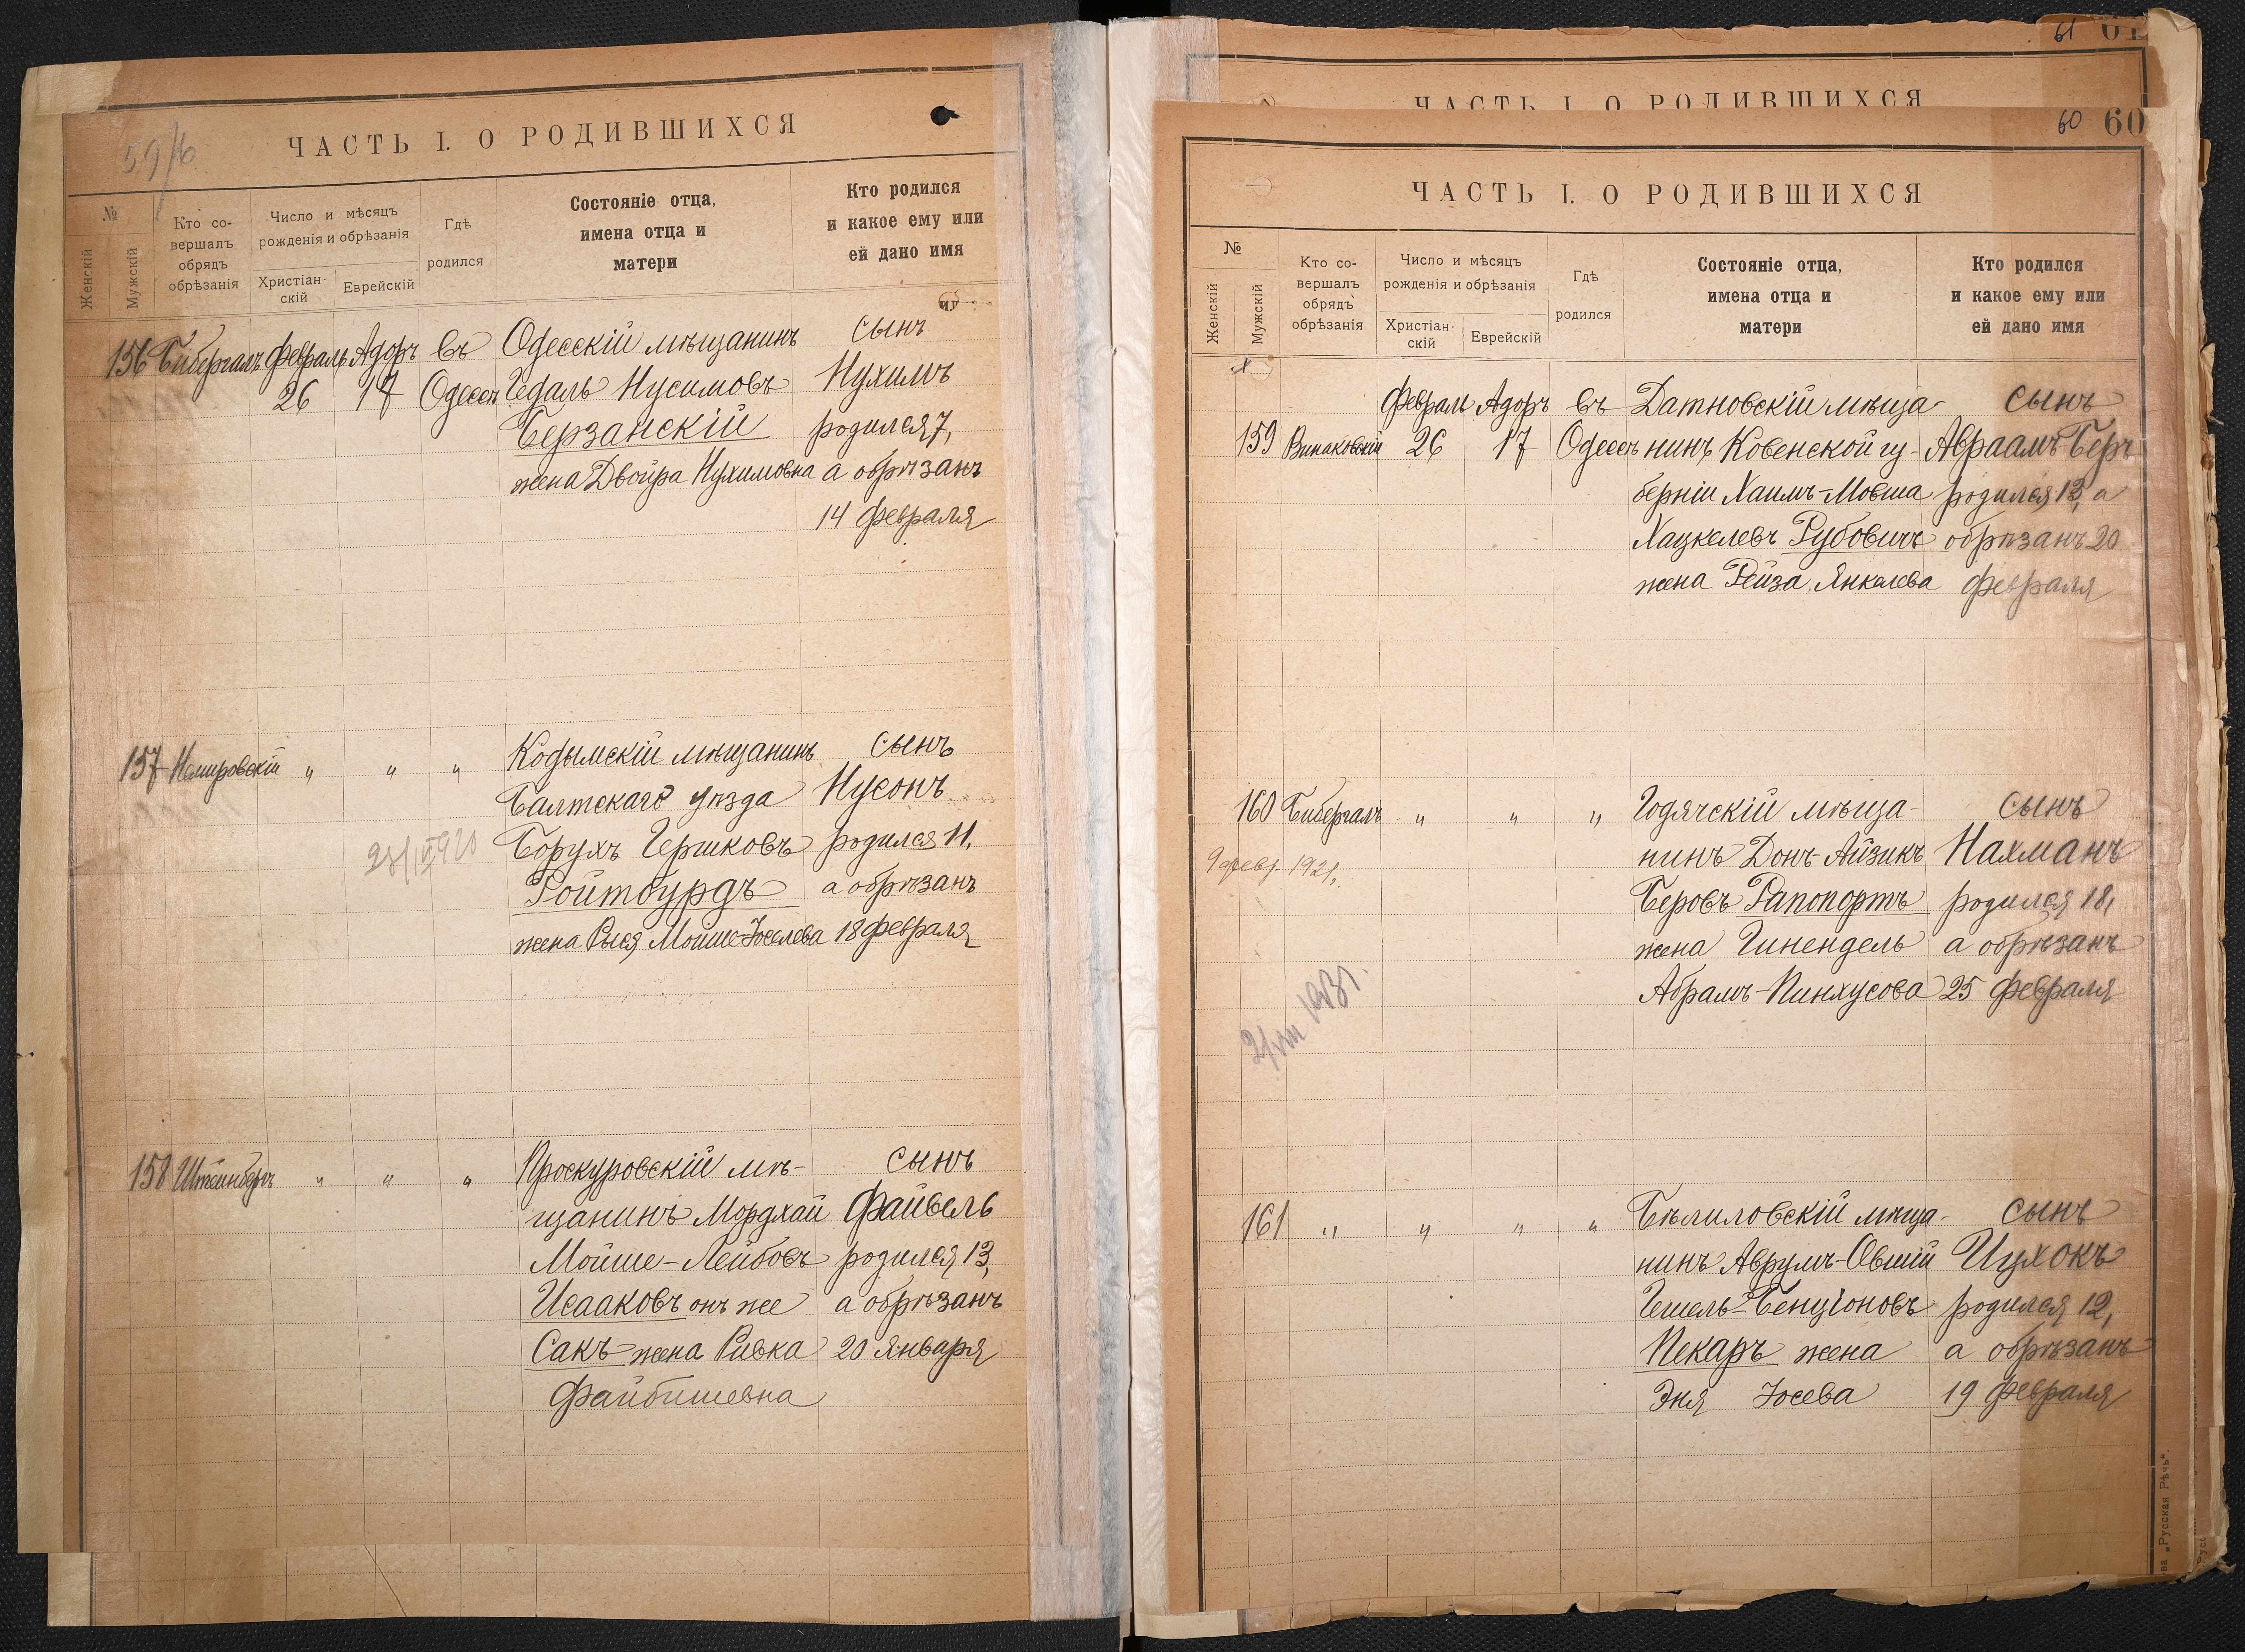 59/б
ЧАСТЬ I. О РОДИВШИХСЯ
№
Женскій
Мужскій
Кто со-
вершалъ
обрядъ
обрѣзанія
Число и мѣсяцъ
рожденія и обрѣзанія
Христіан-
скій
Еврейскій
Гдѣ
родился
Состояніе отца,
имена отца и
матери
Кто родился
и какое ему или
ей дано имя
156 Бибергалъ Февраль Адоръ Въ Одесскій мѣщанинъ сынъ
26 17 Одессѣ Гедаль Нусимовъ Нухимъ
Берзанскій родился 7,
жена Двойра Нухимовна а обрѣзанъ
14 февраля
157 Немировскій " " " Кодымскій мѣщанинъ сынъ
Балтскаго уѣзда Нусонъ
Борухъ Гершковъ родился 11,
Ройтбурдъ а обрѣзанъ
жена Рися Мойше-Іоселева 18 февраля
158 Штейнбергъ " " " Проскуровскій мѣ- сынъ
щанинъ Мордхай Файвель
Мойше-Лейбовъ родился 13,
Исааковъ онъ же а обрѣзанъ
Сакъ жена Ривка 20 января
Файбишевна
61
ЧАСТЬ I. О РОДИВШИХСЯ
60 60
ЧАСТЬ I. О РОДИВШИХСЯ
№
Женскій
Мужскій
Кто со-
вершалъ
обрядъ
обрѣзанія
Число и мѣсяцъ
рожденія и обрѣзанія
Христіан-
скій
Еврейскій
Гдѣ
родился
Состояніе отца,
имена отца и
матери
Кто родился
и какое ему или
ей дано имя
Февраль Адоръ Въ Датновскій мѣща- сынъ
159 Винаковскій 26 17 Одессѣ нинъ Ковенской гу- Авраамъ-Беръ
берніи Хаимъ-Мовша родился 13, а
Хацкелевъ Рубовичъ обрѣзанъ 20
жена Рейза Янкелева февраля
160 Бибергалъ " " " Годячскій мѣща- сынъ
нинъ Донъ-Айзикъ Нахманъ
9 февр. 1921.
Беровъ Рапопортъ родился 18,
жена Гинендель а обрѣзанъ
Абрамъ-Пинхусова 25 февраля
161 " " " " Бѣлиловскій мѣща- сынъ
нинъ Аврумъ-Овшій Ицхокъ
Гешель-Бенціоновъ родился 12,
Пекаръ жена а обрѣзанъ
Эня Іосева 19 февраля
„Русская Рѣчь“.